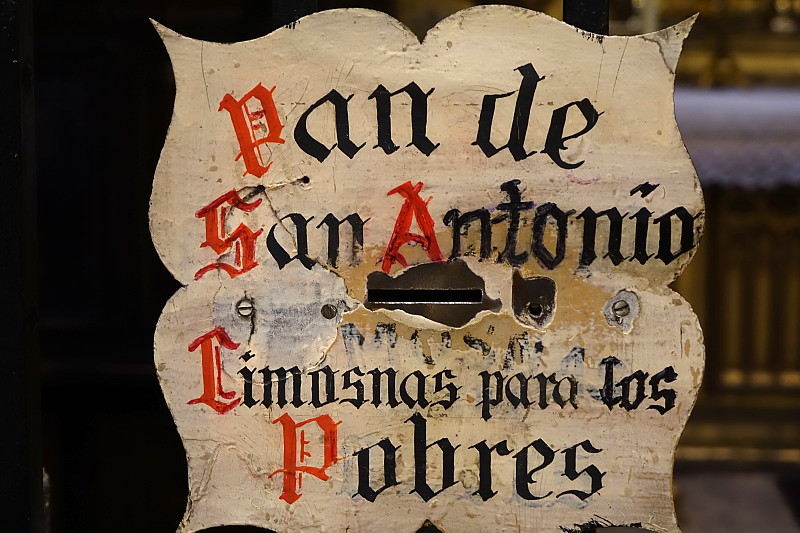 Pan de
San Antonio
Limosnas para los
Pobres